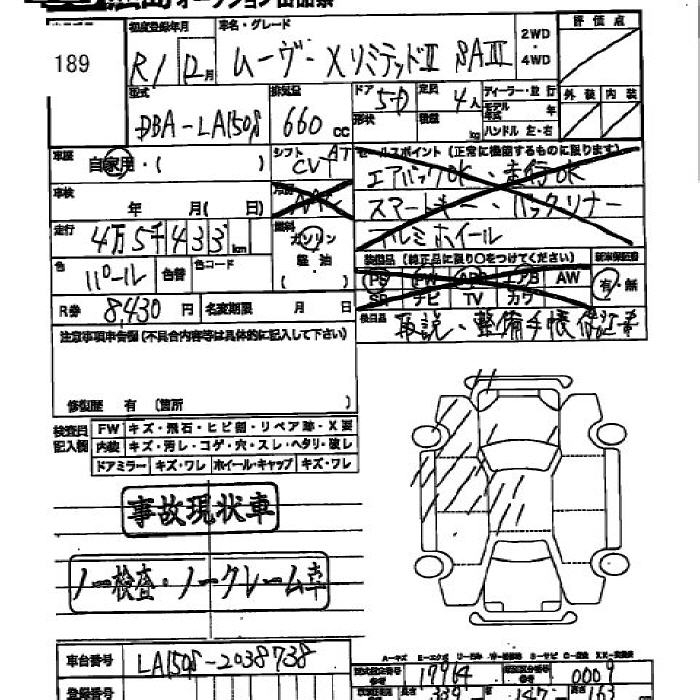 オークション出品票
189
初度登録年月 車名・グレード 2WD・4WD 評価点
R1 12月 ムーヴ・XリミテッドⅡ SAⅢ
型式 排気量 ドア 5D 定員 4人 ディーラー・並行 外装 内装
DBA-LA150S 660cc 形状 積載 kg モデル年式 年 ハンドル 左・右
車歴 自家用・( ) シフト CVT AT セールスポイント(正常に機能するものに限ります)
エアバックOK、走行OK
車検 年 月( 日) 冷房 AAC スマートキー、バックリナー
走行 4万5千433km 燃料 ガソリン・軽油( ) アルミホイール
装備品(純正品に限り○をつけてください) 新車保証書
色 パール 色替 色コード PS PW ABS エアB AW 有・無
SR ナビ TV カワ
R券 8,430円 名変期限 月 日 後日品 取説、整備手帳 保証書
注意事項申告欄(不具合内容等は具体的に記入して下さい)
修復歴 有(箇所 )
検査員記入欄 FW キズ・飛石・ヒビ割・リペア跡・X要
内装 キズ・汚レ・コゲ・穴・スレ・ヘタリ・破レ
ドアミラー キズ・ワレ ホイール・キャップ キズ・ワレ
事故現状車
ノー検査・ノークレーム車
車台番号 LA150S-2038738 型式指定番号 17964 類別区分番号 0009
登録番号 長さ 339 幅 147 高さ 163